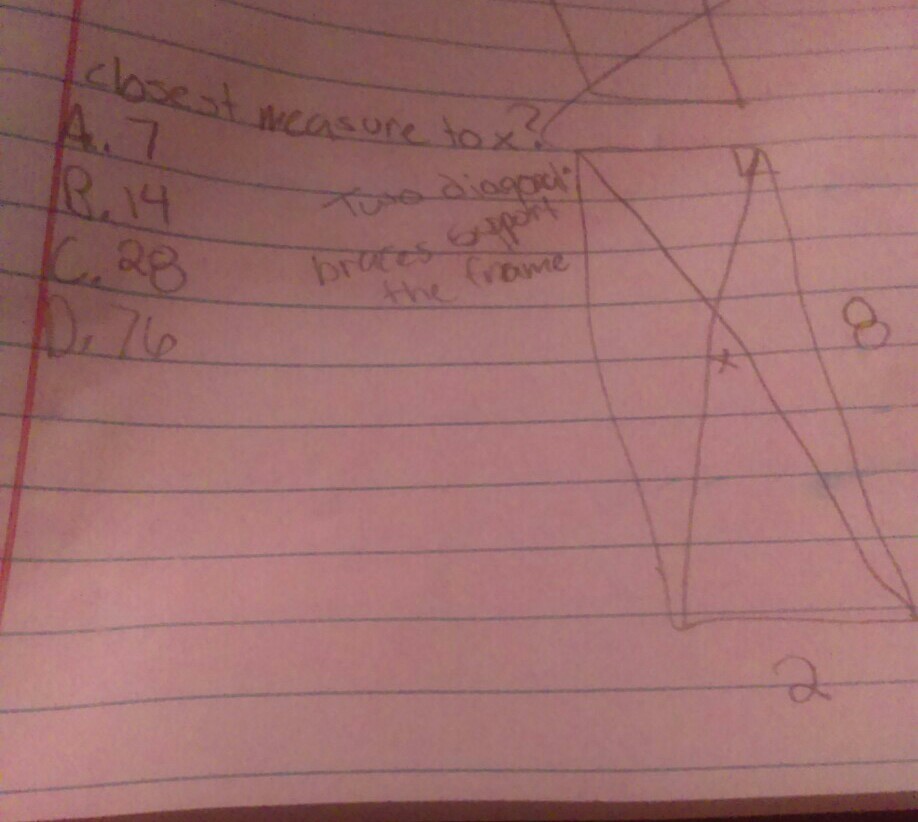 closest measure to x?
A. 7
B. 14
C. 28
D. 76
Two diagonal
braces support
the frame
8
x
2